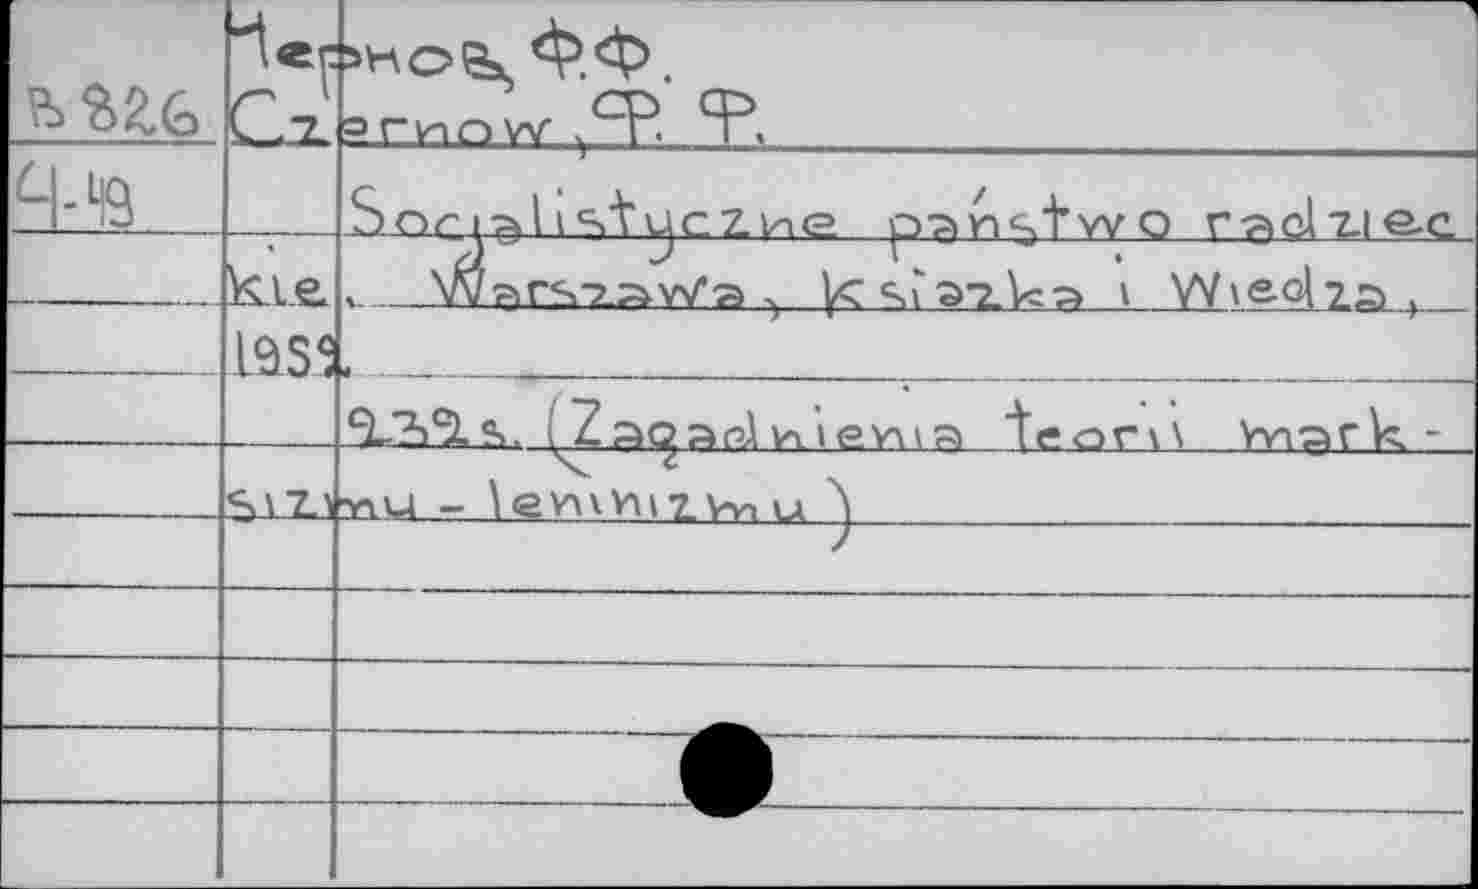 Чернов, Ф.Ф.
В826 Czernow, F. F.
Ч-49 Socjalistyczne państwo radziec
kie. Warszawa, Książka i Wiedza,
1952.
s. (Zagadnienia teorii mark-
sizmu - leninizmu)